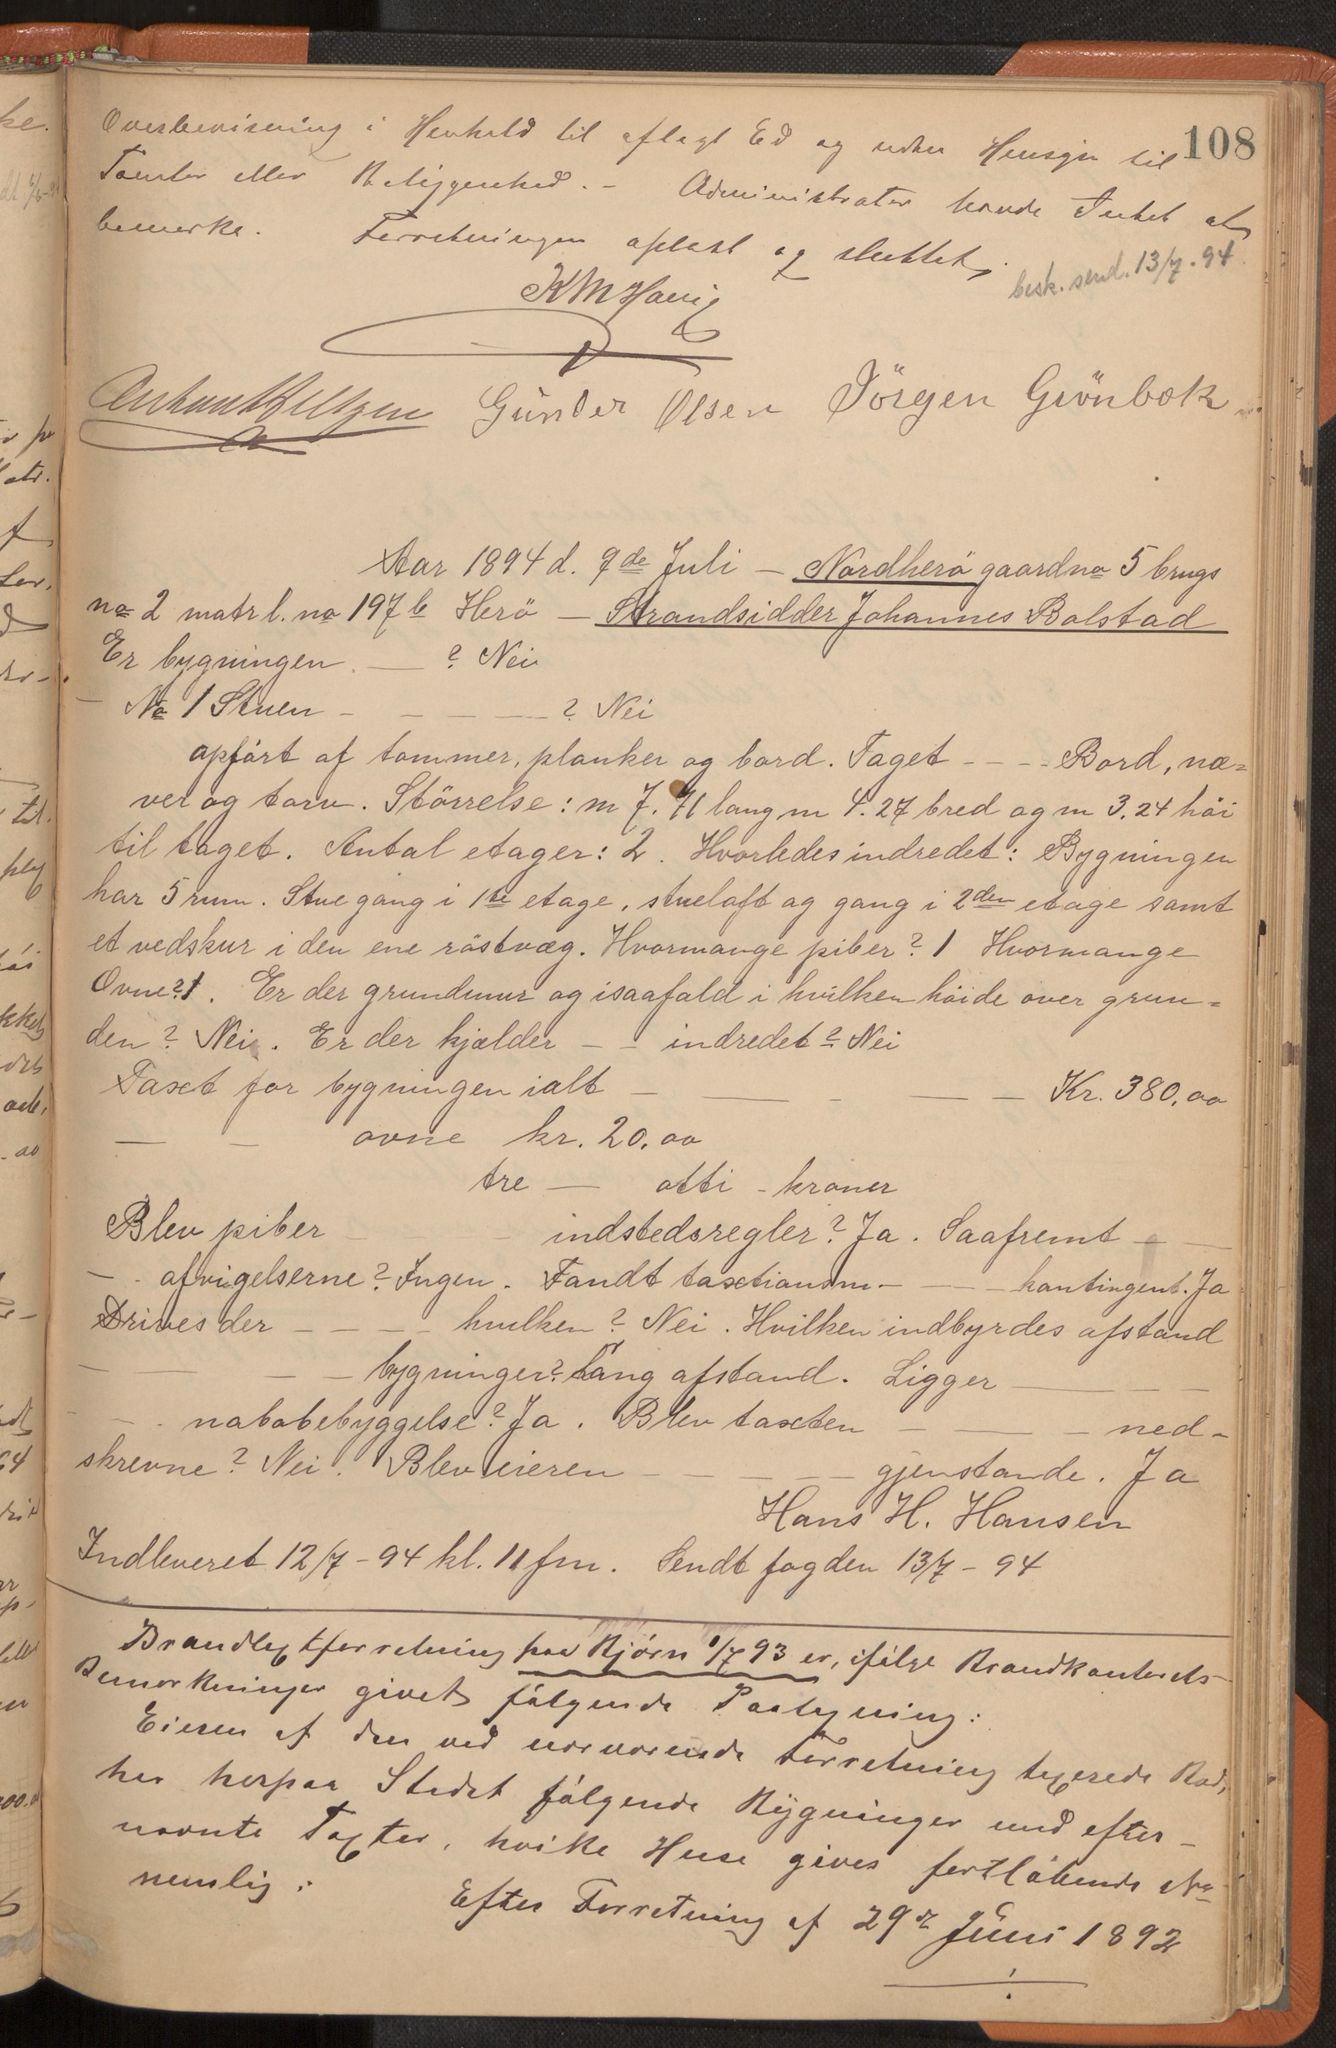 108
Overbevisning i Henhold til aflagt Ed og uden Hensyn til
Tomter eller Beliggenhed. - Administrator havde Intet at
bemærke. Forretningen oplæst og sluttet.
besk. send. 13/7 - 94
KM Havig
Gunder Olsen Jörgen Grönbæk
Aar 1894 d. 9de Juli - Nordherö gaardno 5 brugs
no 2 matrl. no 197b Herö - Strandsidder Johannes Bolstad
Er bygningen. - ? Nei
- No 1 Stuen - - - - ? Nei
opfört af tømmer, planker og bord. Taget - - - Bord, næ=
ver og torv. Störrelse: m 7.71 lang m 4.27 bred og m 3.24 höi
til taget. Antal etager: 2. Hvorledes indredet: Bygningen
har 5 rum. Stue gang i 1ste etage, stueloft og gang i 2den etage samt
et vedskur i den ene röstvæg. Hvormange piber? 1 Hvormange
Ovne? 1. Er der grundmur og isaafald i hvilken höide over grun=
den? Nei. Er der kjælder - - indredet? Nei
Taxt for bygningen ialt - - - - - Kr. 380,00
- - ovne kr. 20.00
tre - otti - kroner
Blev piber - - indstedsregler? Ja. Saafremt - -
- - afvigelserne? Ingen. Fandt taxtionsm. - - kontingent. Ja
Drives der - - - - hvilken? Nei. Hvilken indbyrdes afstand
- - - - bygninger? Lang afstand. Ligger - - - -
- - nabobebyggelse? Ja. Blev taxten - - - ned-
skrevne? Nei. Blev eieren - - - - gjenstande. Ja
Hans H. Hansen
Indleveret 12/7 - 94 kl. 11 fm. Sendt fogden 13/7 - 94
Brandtaxtforretning paa Bjørn 1/7 93 er, ifölge Brandkontorets
Bemærkninger givet fölgende Paategning:
Eieren af den ved nærværende Forretning taxerede Bod,
har herpaa Stedet fölgende Bygninger med efter-
nævnte Taxter, hvilke Huse gives fortlöbende No
nemlig:
Efter Forretning af 29de Juni 1892